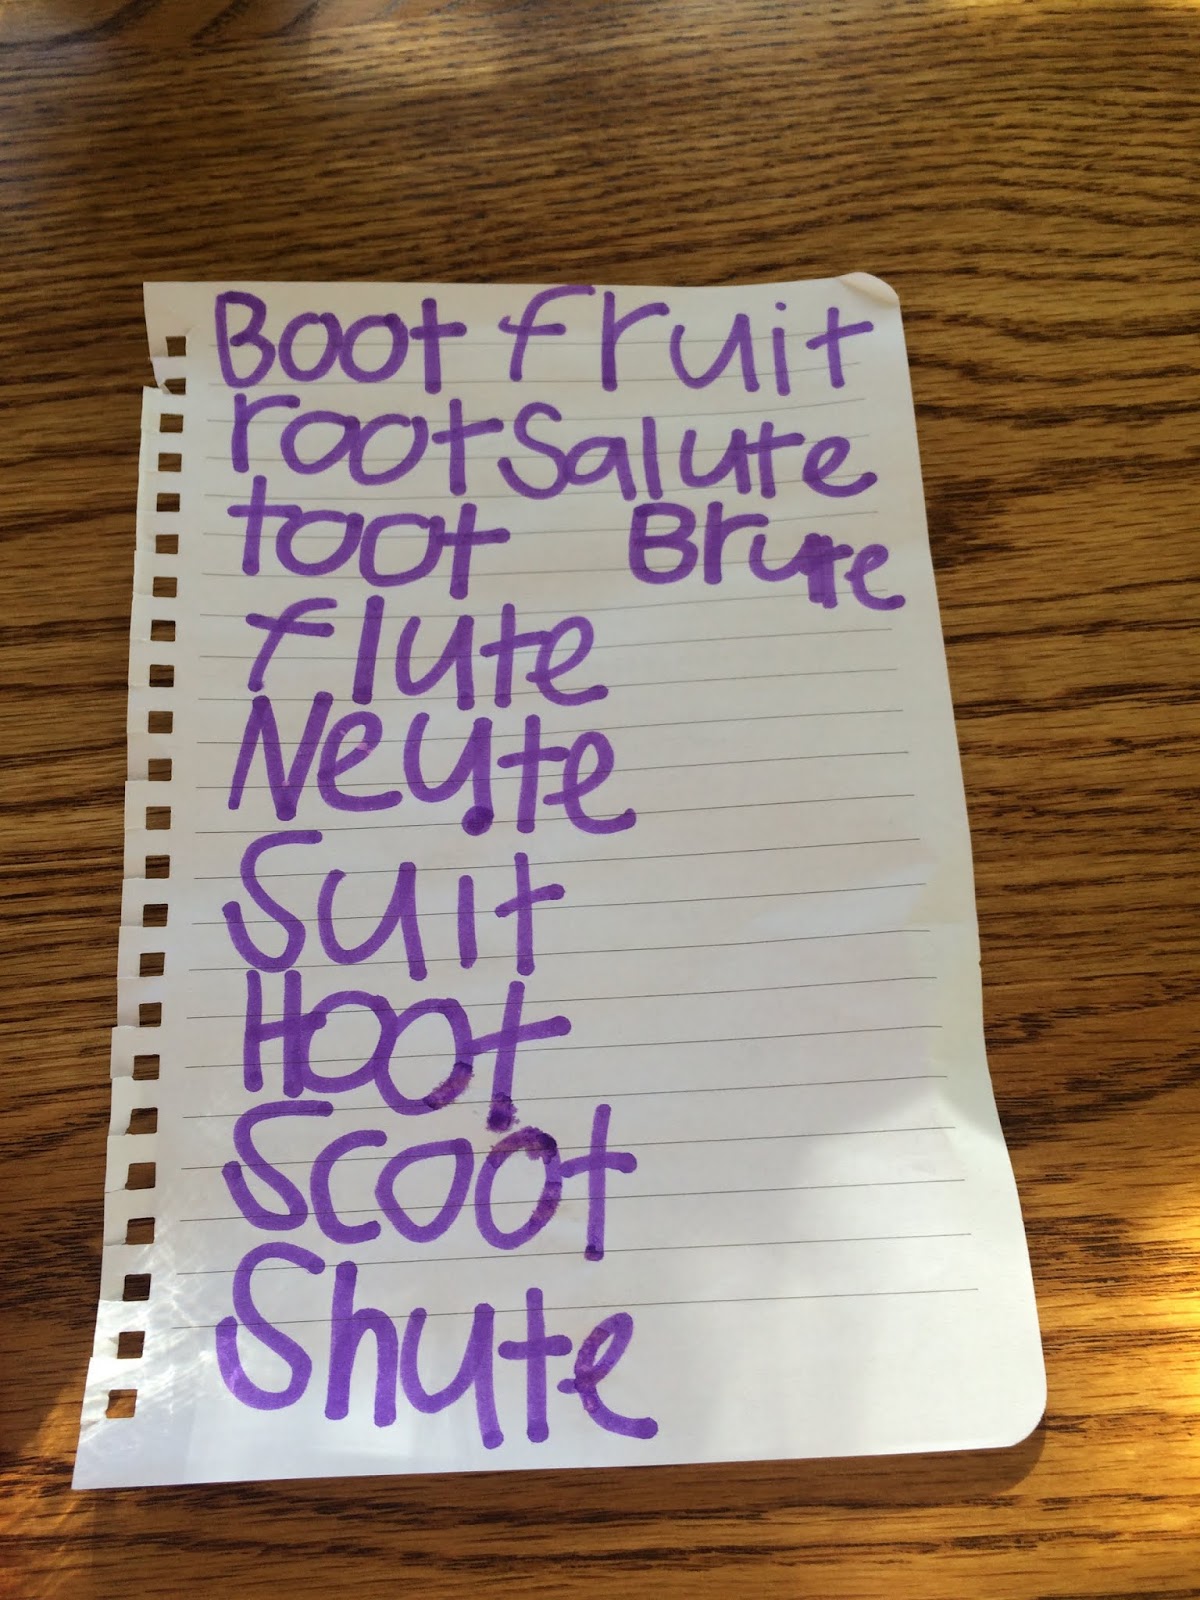 Boot fruit
root Salute
toot Brute
flute
Neute
Suit
Hoot
Scoot
Shute